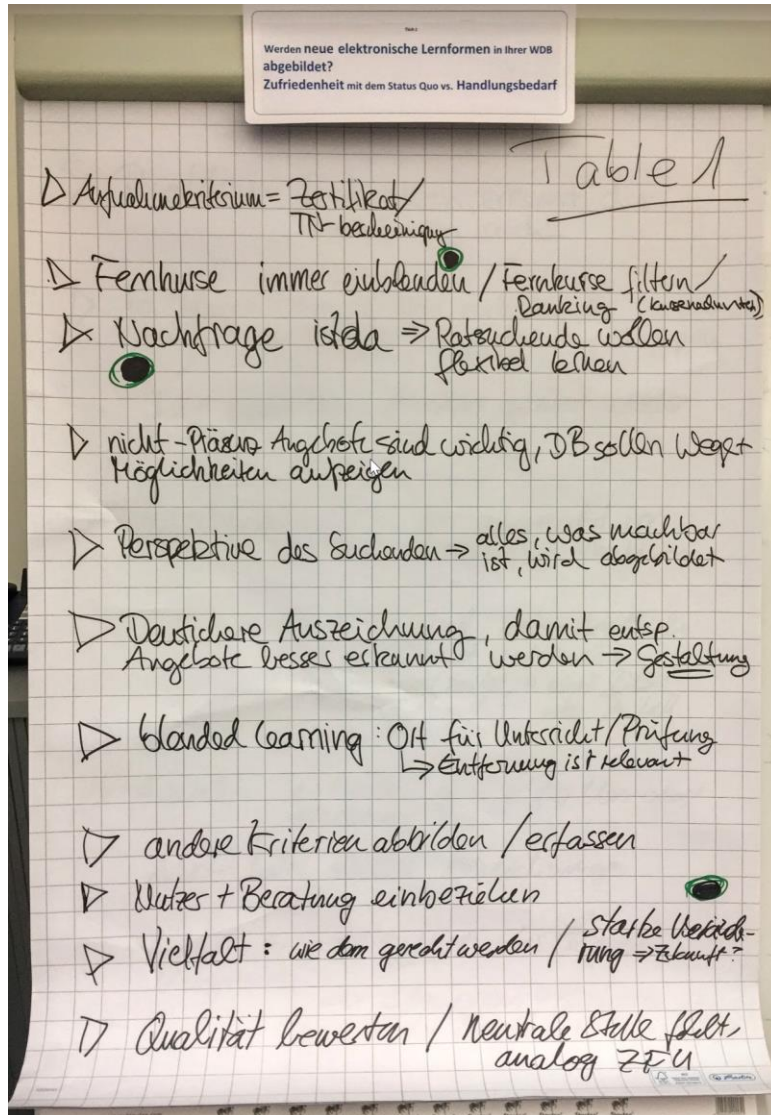 Werden neue elektronische Lernformen in Ihrer WDB
abgebildet?
Zufriedenheit mit dem Status Quo vs. Handlungsbedarf
Table 1
▷ Aufnahmekriterium = Zertifikat/
TN-bescheinigung
▷ Fernkurse immer einblenden / Fernkurse filtern/
Ranking
▷ Nachfrage ist da ⇒ Ratsuchende wollen
flexibel lernen
▷ nicht-Präsenz Angebote sind wichtig, DB sollen Wege+
Möglichkeiten aufzeigen
▷ Perspektive des Suchenden → alles, was machbar
ist, wird abgebildet
▷ Deutlichere Auszeichnung, damit entsp.
Angebote besser erkannt werden → Gestaltung
▷ blended learning: Ort für Unterricht/Prüfung
↳ Entfernung ist relevant
▷ andere Kriterien abbilden / erfassen
▷ Nutzer + Beratung einbeziehen
▷ Vielfalt: wie dem gerecht werden / starke Verände-
rung ⇒ Zukunft?
▷ Qualität bewerten / neutrale Stelle fehlt,
analog ZFU